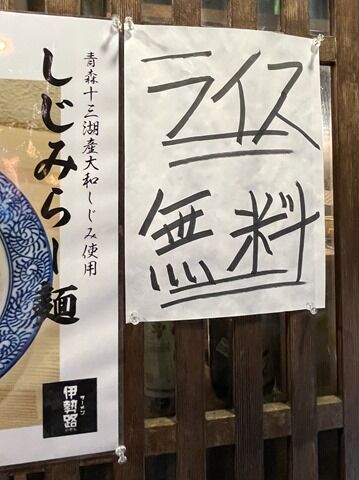 ライス
無料
青森十三湖産大和しじみ使用
しじみらー麺
ラーメン
伊勢路